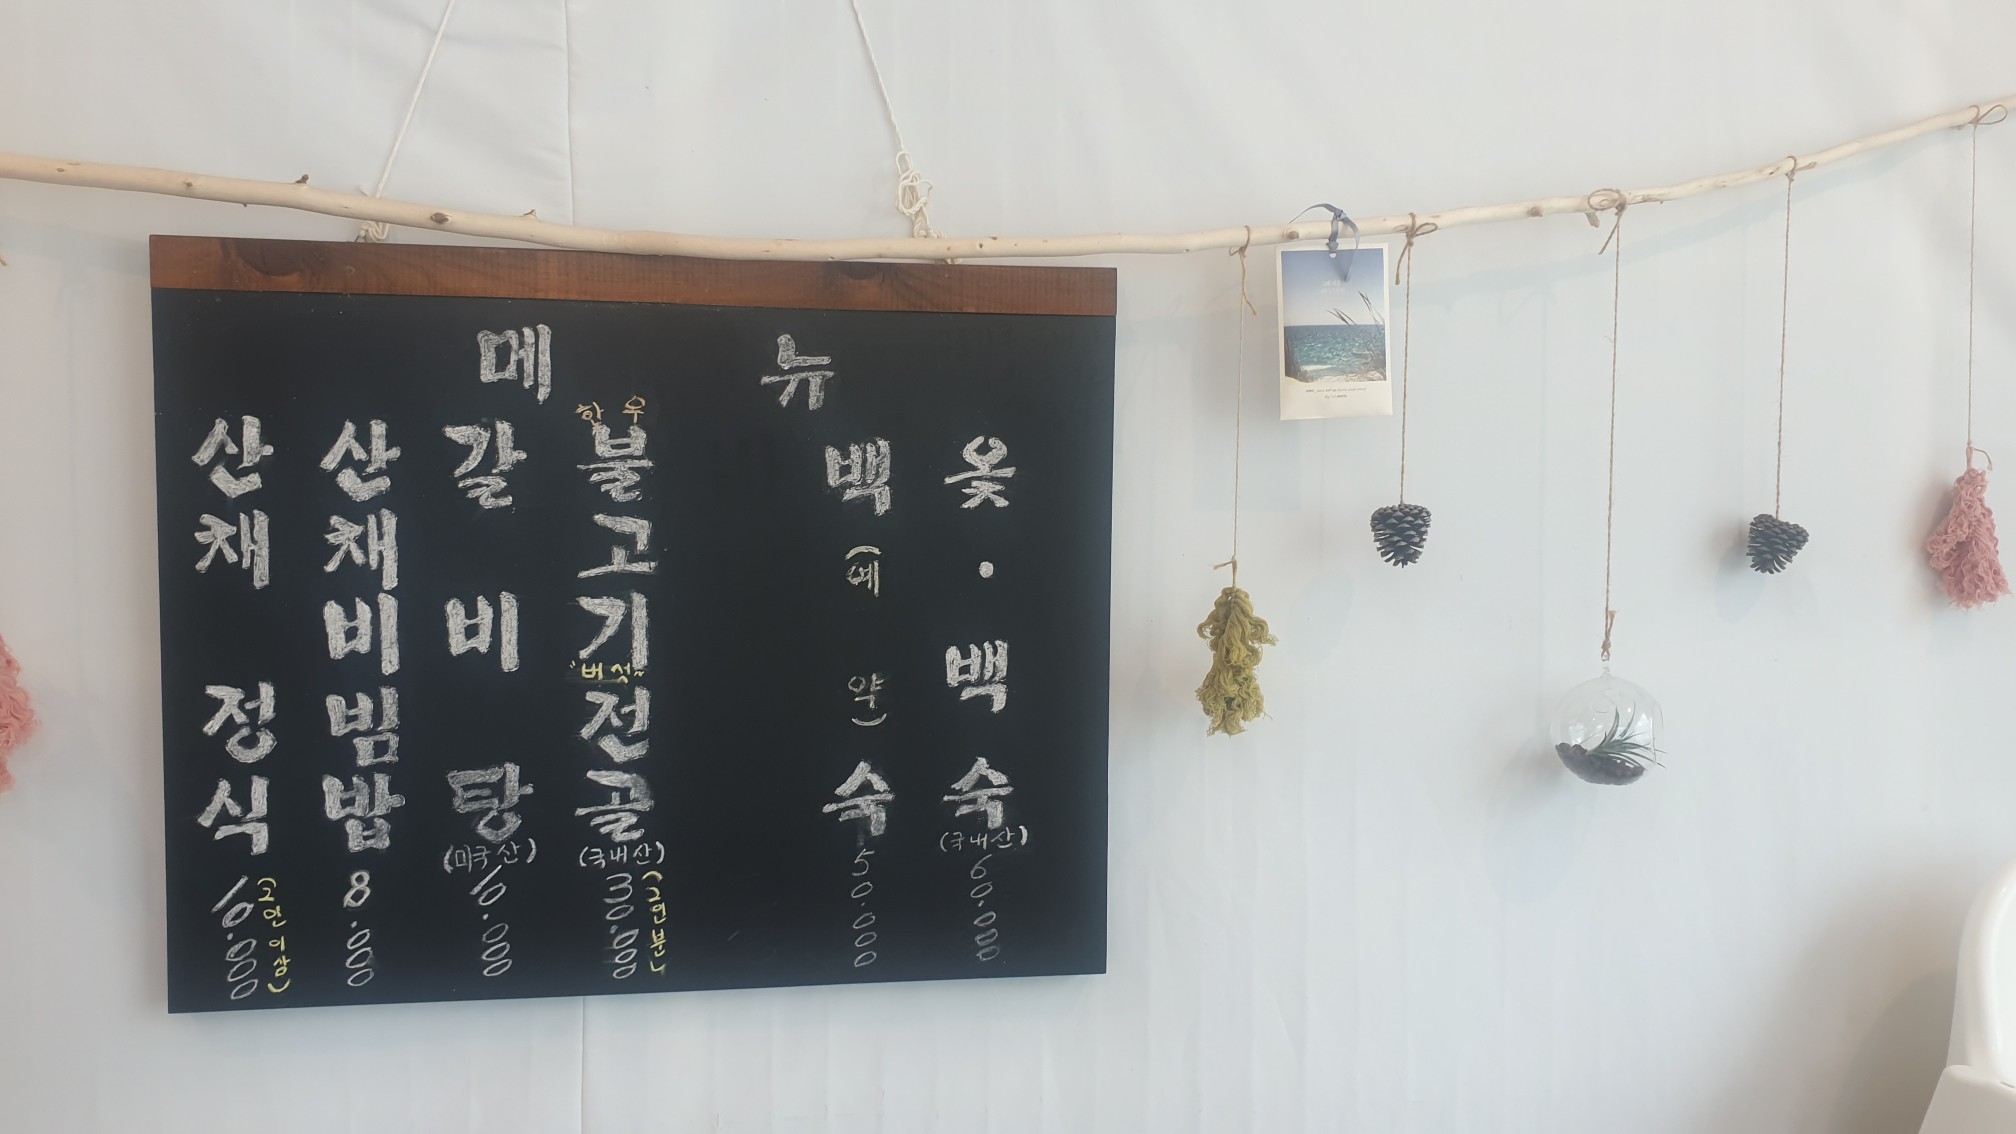 메 뉴
산채 정식 10.000 (2인 이상)
산채비빔밥 8.000
갈비탕 (미국산) 10.000
한우 불고기 "버섯" 전골 (국내산) 30.000 (2인분)
백 (예약) 숙 50.000
옻·백숙 (국내산) 60.000